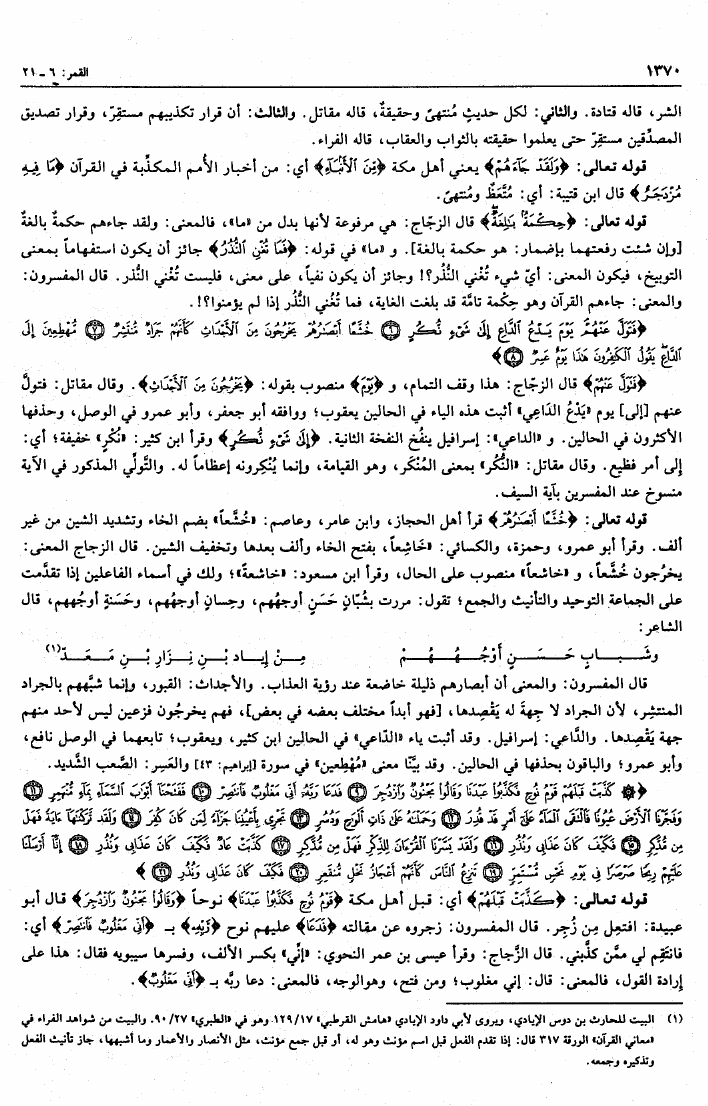 ١٣٧٠ القمر: ٦ ـ ٢١
الشر، قاله قتادة. والثاني: لكل حديثٍ مُنتهىً وحقيقةٌ، قاله مقاتل. والثالث: أن قرار تكذيبهم مستقِرّ، وقرار تصديق
المصدِّقين مستقِرّ حتى يعلموا حقيقته بالثواب والعقاب، قاله الفراء.
قوله تعالى: ﴿وَلَقَدْ جَآءَهُم﴾ يعني أهل مكة ﴿مِّنَ ٱلْأَنۢبَآءِ﴾ أي: من أخبار الأُمم المكذِّبة في القرآن ﴿مَا فِيهِ
مُزْدَجَرٌ﴾ قال ابن قتيبة: أي: مُتَّعَظٌ ومُنتهىً.
قوله تعالى: ﴿حِكْمَةٌۢ بَٰلِغَةٌ﴾ قال الزجّاج: هي مرفوعة لأنها بدل من «ما»، فالمعنى: ولقد جاءهم حكمةٌ بالغةٌ
[وإن شئت رفعتهما بإضمار: هو حكمة بالغة]. و «ما» في قوله: ﴿فَمَا تُغْنِ ٱلنُّذُرُ﴾ جائز أن يكون استفهاماً بمعنى
التوبيخ، فيكون المعنى: أيّ شيء تُغْني النُّذُر؟! وجائز أن يكون نفياً، على معنى، فليست تُغْني النُّذر. قال المفسرون:
والمعنى: جاءهم القرآن وهو حِكْمة تامَّة قد بلغت الغاية، فما تُغْني النُّذر إذا لم يؤمنوا؟!.
﴿فَتَوَلَّ عَنْهُمْ يَوْمَ يَدْعُ ٱلدَّاعِ إِلَىٰ شَىْءٍ نُّكُرٍ ۝٦ خُشَّعًا أَبْصَٰرُهُمْ يَخْرُجُونَ مِنَ ٱلْأَجْدَاثِ كَأَنَّهُمْ جَرَادٌ مُّنتَشِرٌ ۝٧ مُّهْطِعِينَ إِلَى
ٱلدَّاعِ يَقُولُ ٱلْكَٰفِرُونَ هَٰذَا يَوْمٌ عَسِرٌ ۝٨﴾
﴿فَتَوَلَّ عَنْهُمْ﴾ قال الزجّاج: هذا وقف التمام، و ﴿يَوْمَ﴾ منصوب بقوله: ﴿يَخْرُجُونَ مِنَ ٱلْأَجْدَاثِ﴾. وقال مقاتل: فتولَّ
عنهم [إلى] يوم «يَدْعُ الدَّاعِي» أثبت هذه الياء في الحالين يعقوب؛ ووافقه أبو جعفر، وأبو عمرو في الوصل، وحذفها
الأكثرون في الحالين. و «الداعي»: إسرافيل ينفُخ النفخة الثانية. ﴿إِلَىٰ شَىْءٍ نُّكُرٍ﴾ وقرأ ابن كثير: «نُكْرٍ» خفيفة؛ أي:
إلى أمر فظيع. وقال مقاتل: «النُّكُر» بمعنى المُنْكَر، وهو القيامة، وإنما يُنْكِرونه إعظاماً له. والتَّولِّي المذكور في الآية
منسوخ عند المفسرين بآية السيف.
قوله تعالى: ﴿خُشَّعًا أَبْصَٰرُهُمْ﴾ قرأ أهل الحجاز، وابن عامر، وعاصم: «خُشَّعاً» بضم الخاء وتشديد الشين من غير
ألف. وقرأ أبو عمرو، وحمزة، والكسائي: «خَاشِعاً»، بفتح الخاء وألف بعدها وتخفيف الشين. قال الزجاج المعنى:
يخرُجون خُشَّعاً، و «خاشعاً» منصوب على الحال، وقرأ ابن مسعود: «خاشعةً»؛ ولك في أسماء الفاعلين إذا تقدَّمت
على الجماعة التوحيد والتأنيث والجمع؛ تقول: مررت بشُبّانٍ حَسَنٍ أوجهُهم، وحِسانٍ أوجهُهم، وحَسَنةٍ أوجُههم، قال
الشاعر:
وشَــبــابٍ حَــسَــنٍ أَوْجُــهُــهُــمْ مِــنْ إيــادِ بْــنِ نِــزَارِ بْــنِ مَــعَــدّ(١)
قال المفسرون: والمعنى أن أبصارهم ذليلة خاضعة عند رؤية العذاب. والأجداث: القبور، وإنما شبَّههم بالجراد
المنتشِر، لأن الجراد لا جِهةَ له يَقْصِدها، [فهو أبداً مختلف بعضه في بعض]، فهم يخرجُون فزعين ليس لأحد منهم
جهة يَقْصِدها. والدَّاعي: إسرافيل. وقد أثبت ياء «الدَّاعي» في الحالين ابن كثير، ويعقوب؛ تابعهما في الوصل نافع،
وأبو عمرو؛ والباقون بحذفها في الحالين. وقد بيَّنَّا معنى «مُهْطِعين» في سورة [إبراهيم: ٤٣] والعَسِر: الصَّعب الشَّديد.
﴿۞ كَذَّبَتْ قَبْلَهُمْ قَوْمُ نُوحٍ فَكَذَّبُوا۟ عَبْدَنَا وَقَالُوا۟ مَجْنُونٌ وَٱزْدُجِرَ ۝٩ فَدَعَا رَبَّهُۥٓ أَنِّى مَغْلُوبٌ فَٱنتَصِرْ ۝١٠ فَفَتَحْنَآ أَبْوَٰبَ ٱلسَّمَآءِ بِمَآءٍ مُّنْهَمِرٍ ۝١١
وَفَجَّرْنَا ٱلْأَرْضَ عُيُونًا فَٱلْتَقَى ٱلْمَآءُ عَلَىٰٓ أَمْرٍ قَدْ قُدِرَ ۝١٢ وَحَمَلْنَٰهُ عَلَىٰ ذَاتِ أَلْوَٰحٍ وَدُسُرٍ ۝١٣ تَجْرِى بِأَعْيُنِنَا جَزَآءً لِّمَن كَانَ كُفِرَ ۝١٤ وَلَقَد تَّرَكْنَٰهَآ ءَايَةً فَهَلْ
مِن مُّدَّكِرٍ ۝١٥ فَكَيْفَ كَانَ عَذَابِى وَنُذُرِ ۝١٦ وَلَقَدْ يَسَّرْنَا ٱلْقُرْءَانَ لِلذِّكْرِ فَهَلْ مِن مُّدَّكِرٍ ۝١٧ كَذَّبَتْ عَادٌ فَكَيْفَ كَانَ عَذَابِى وَنُذُرِ ۝١٨ إِنَّآ أَرْسَلْنَا
عَلَيْهِمْ رِيحًا صَرْصَرًا فِى يَوْمِ نَحْسٍ مُّسْتَمِرٍّ ۝١٩ تَنزِعُ ٱلنَّاسَ كَأَنَّهُمْ أَعْجَازُ نَخْلٍ مُّنقَعِرٍ ۝٢٠ فَكَيْفَ كَانَ عَذَابِى وَنُذُرِ ۝٢١﴾
قوله تعالى: ﴿كَذَّبَتْ قَبْلَهُمْ﴾ أي: قبل أهل مكة ﴿قَوْمُ نُوحٍ فَكَذَّبُوا۟ عَبْدَنَا﴾ نوحاً ﴿وَقَالُوا۟ مَجْنُونٌ وَٱزْدُجِرَ﴾ قال أبو
عبيدة: افتعِل مِن زُجِر. قال المفسرون: زجروه عن مقالته ﴿فَدَعَا﴾ عليهم نوح ﴿رَبَّهُۥٓ﴾ بـ ﴿أَنِّى مَغْلُوبٌ فَٱنتَصِرْ﴾ أي:
فانتقِم لي ممَّن كذَّبني. قال الزَّجاج: وقرأ عيسى بن عمر النحوي: «إنِّي» بكسر الألف، وفسرها سيبويه فقال: هذا على
إرادة القول، فالمعنى: قال: إني مغلوب؛ ومن فتح، وهوالوجه، فالمعنى: دعا ربَّه بـ ﴿أَنِّى مَغْلُوبٌ﴾.
(١) البيت للحارث بن دوس الإيادي، ويروى لأبي داود الإيادي «هامش القرطبي» ١٢٩/١٧ وهو في «الطبري» ٩٠/٢٧. والبيت من شواهد الفراء في
«معاني القرآن» الورقة ٣١٧ قال: إذا تقدم الفعل قبل اسم مؤنث وهو له، أو قبل جمع مؤنث، مثل الأنصار والأعمار وما أشبهها، جاز تأنيث الفعل
وتذكيره وجمعه.